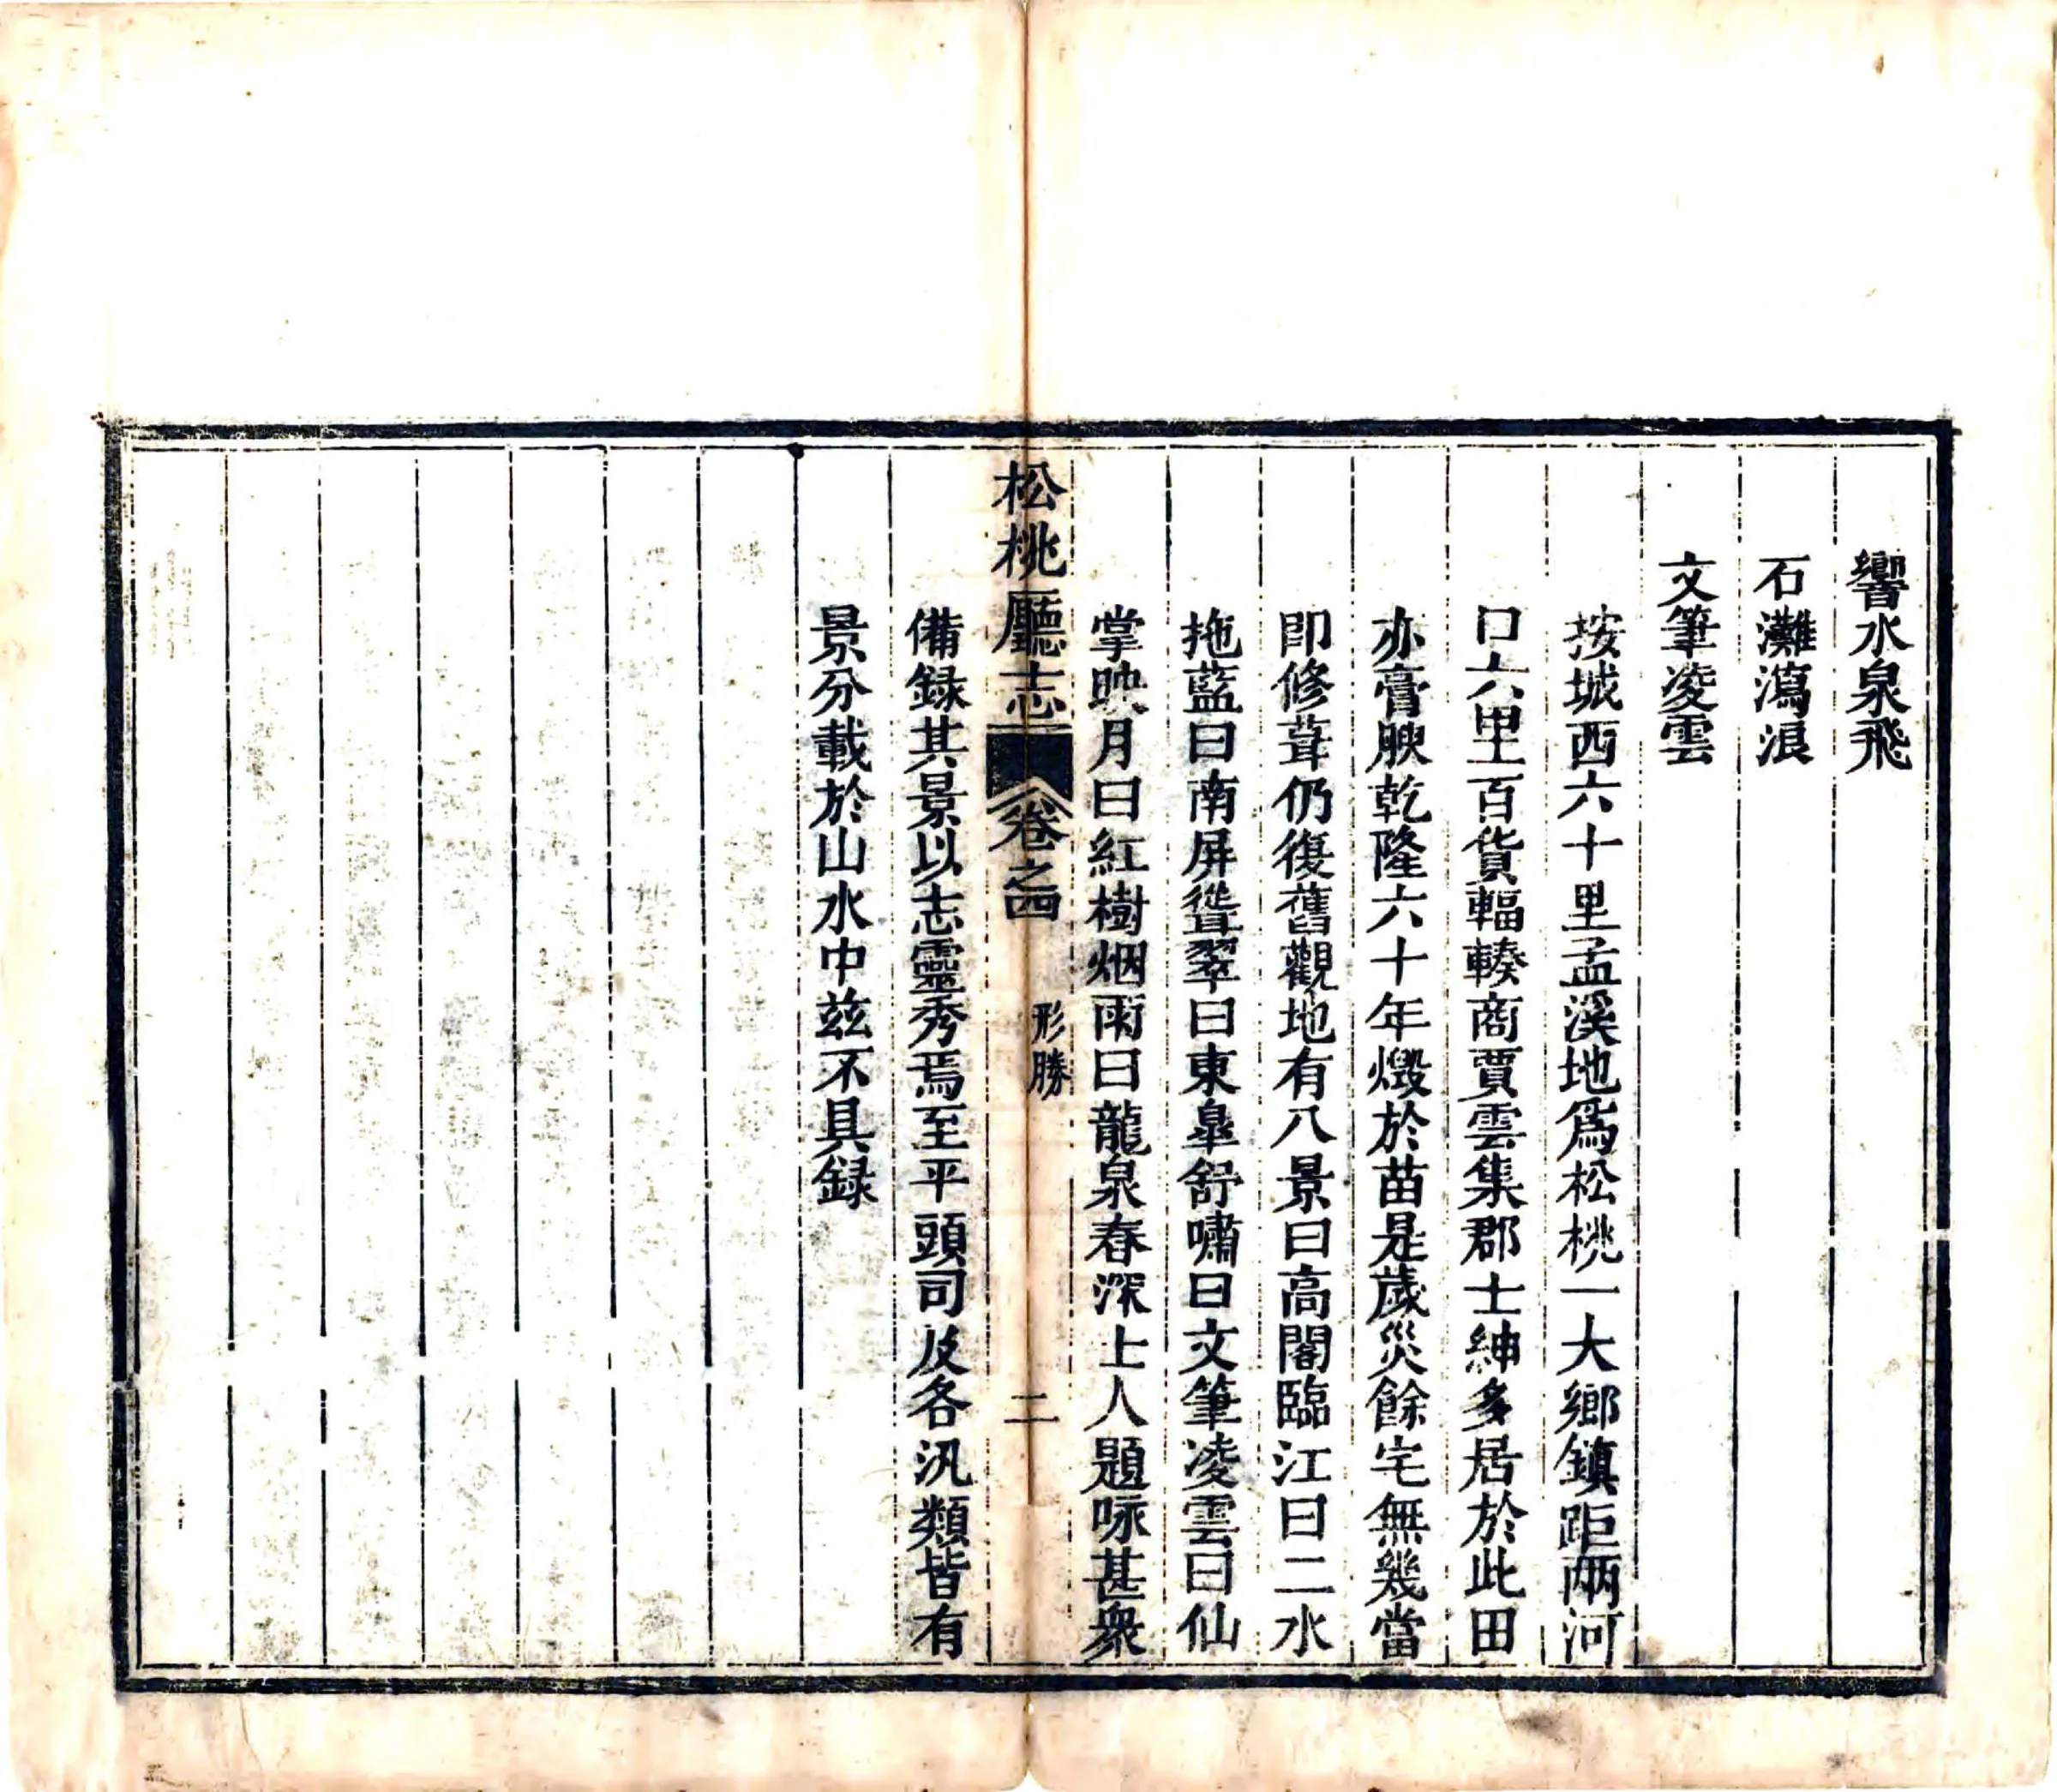 響水泉飛
石灘瀉浪
文筆凌雲
按城西六十里孟溪地爲松桃一大鄉鎮距兩河
口六里百貨輻輳商賈雲集郡士紳多居於此田
亦膏腴乾隆六十年燬於苗是歲災餘宅無幾當
即修葺仍復舊觀地有八景曰高閣臨江曰二水
拖藍曰南屏聳翠曰東皐舒嘯曰文筆凌雲曰仙
掌映月曰紅樹烟雨曰龍泉春深上人題咏甚衆
松桃廳志 卷之四 形勝 二
備録其景以志靈秀焉至平頭司及各汛類皆有
景分載於山水中玆不具録